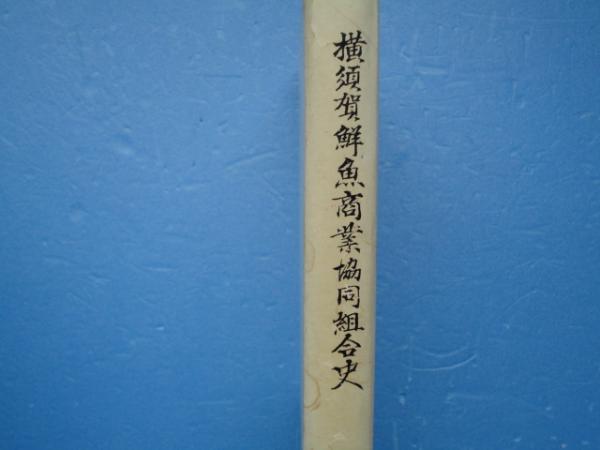 横須賀鮮魚商業協同組合史